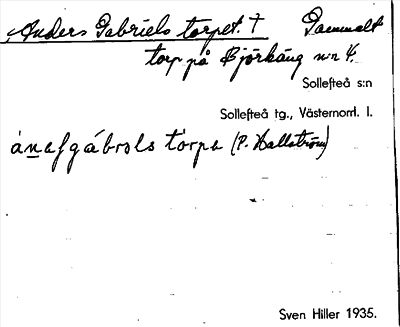 Anders Gabriels torpet. † Gammalt
torp på Björkäng n:r 4.
Sollefteå s:n
Sollefteå tg., Västernorrl. l.
ánasgábrəls tórpə (P. Hallström)
Sven Hiller 1935.